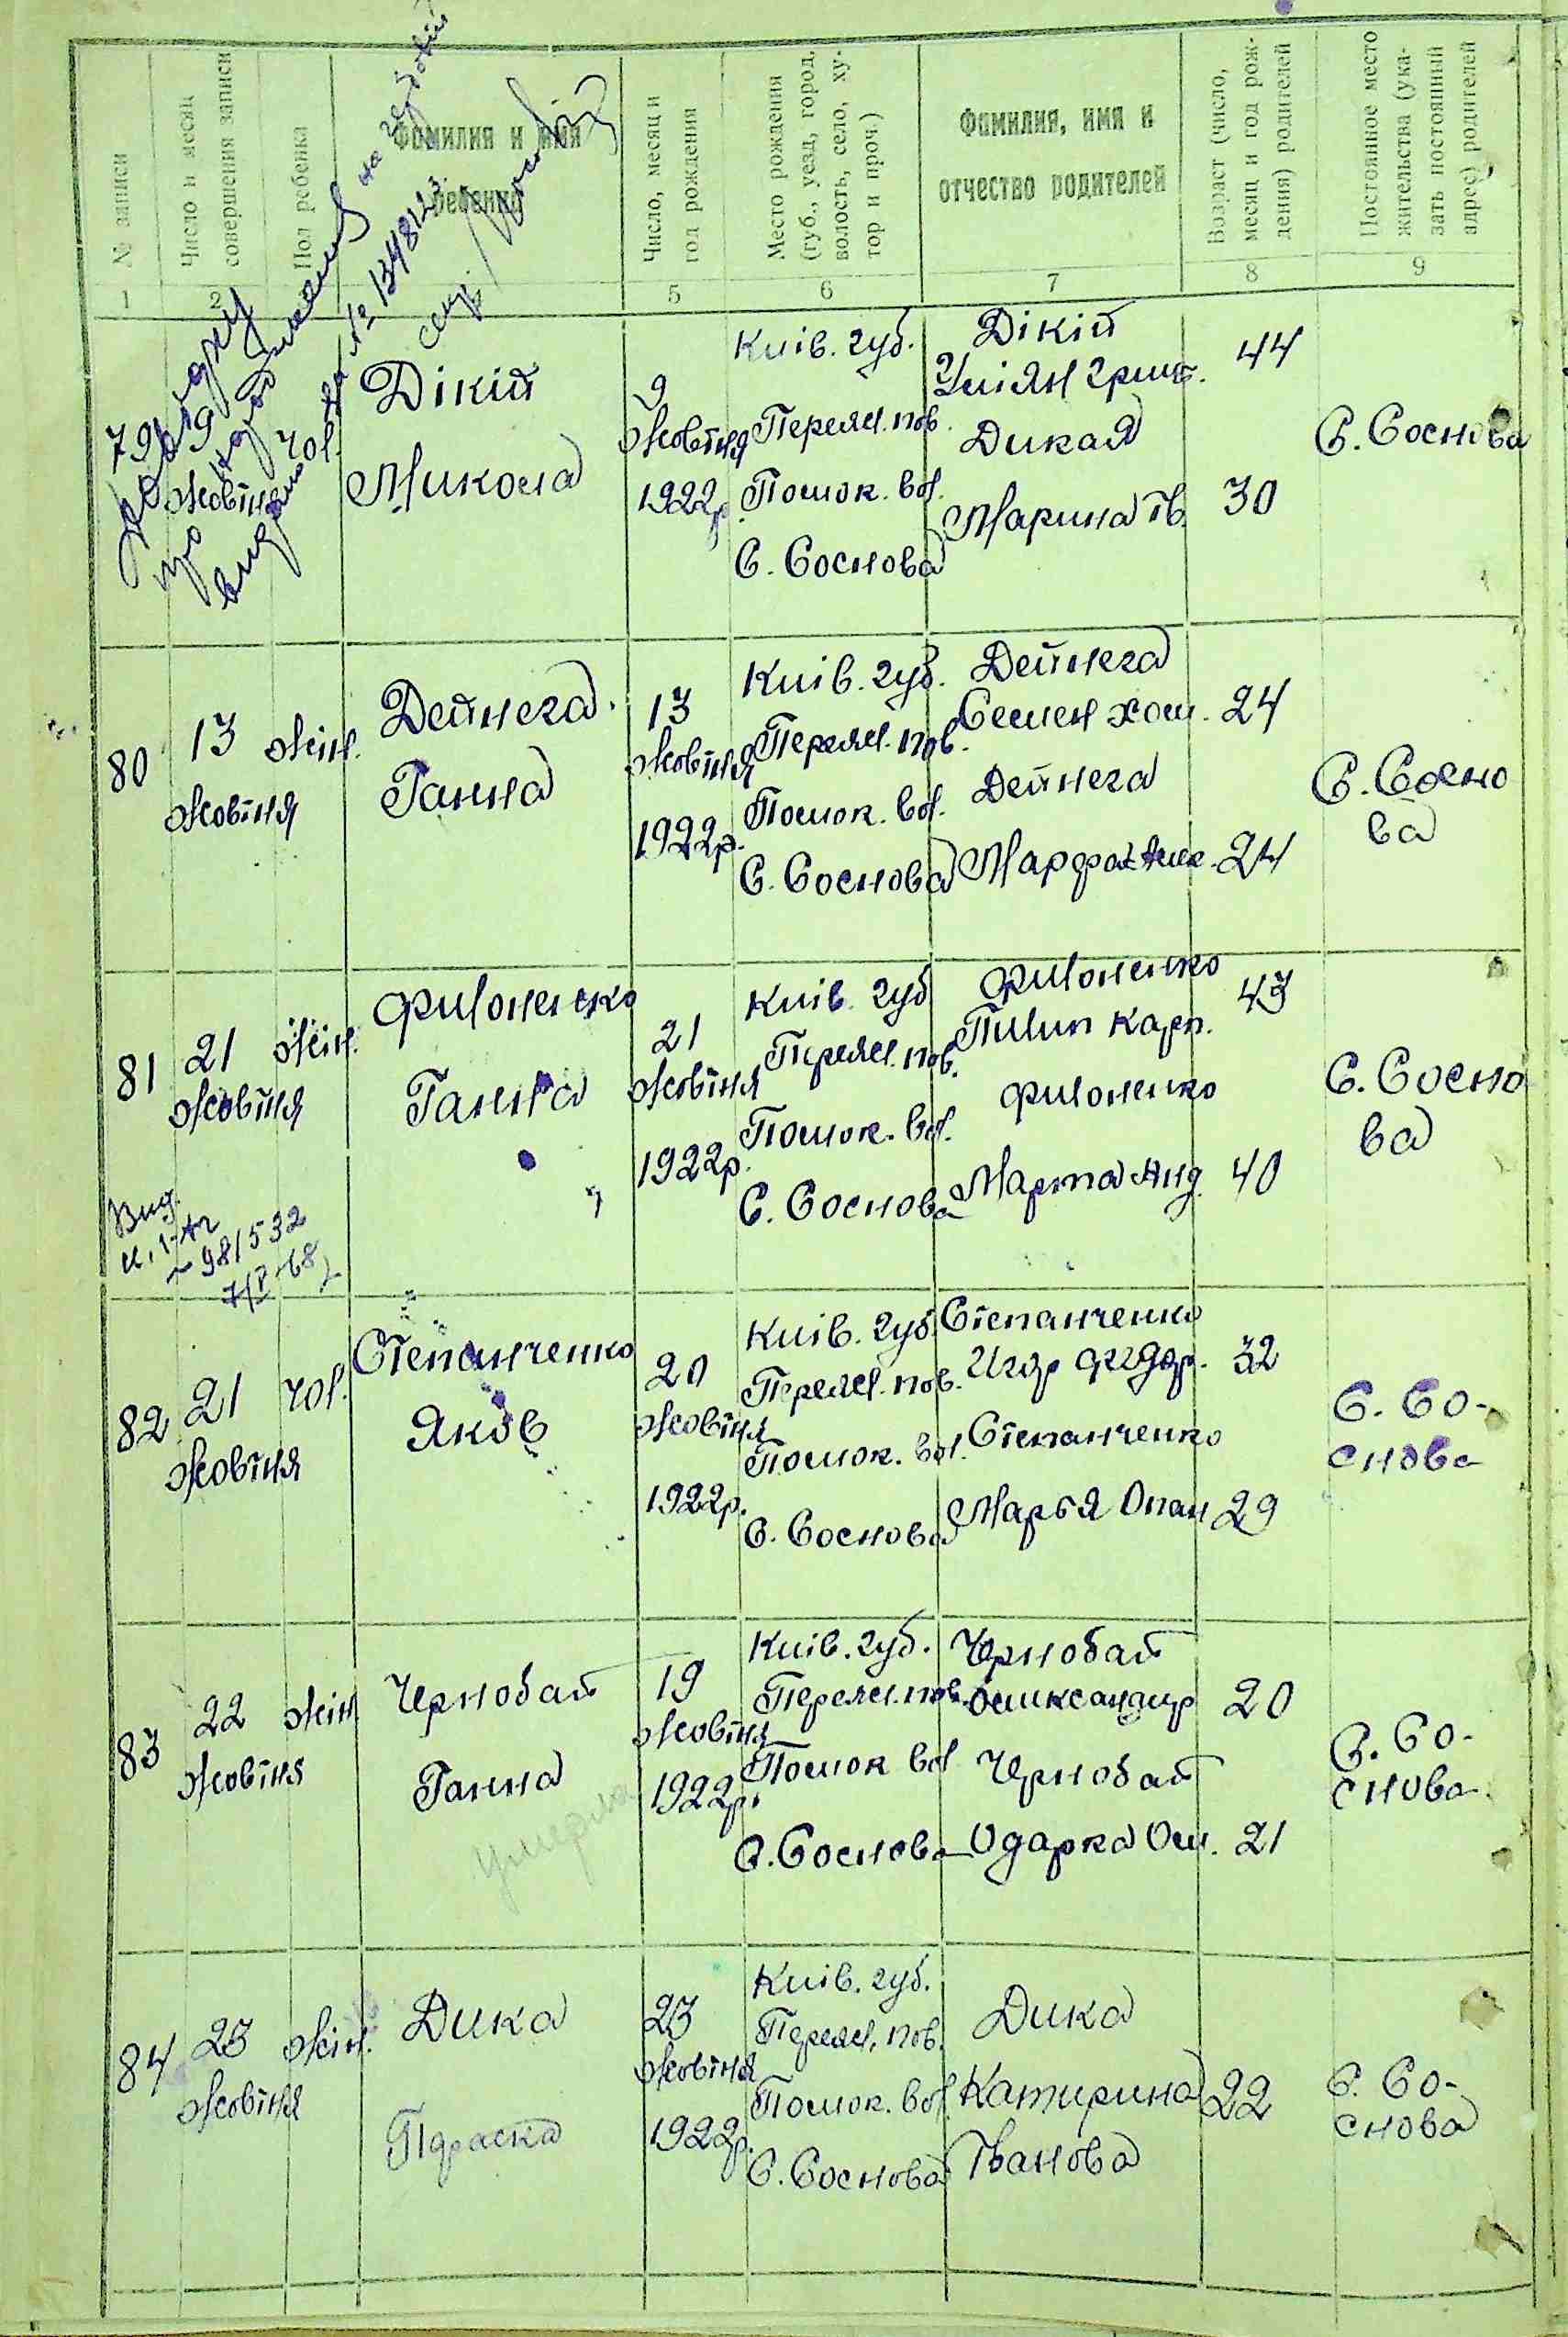 № записи
Число и месяц
совершения записи
Пол ребенка
Фамилия и имя
ребенка
Число, месяц и
год рождения
Место рождения
(губ., уезд, город,
волость, село, ху-
тор и проч.)
Фамилия, имя и
отчество родителей
Возраст (число,
месяц и год рож-
дения) родителей
Постоянное место
жительства (ука-
зать постоянный
адрес) родителей
1
2
5
6
7
8
9
про
видано
№ 134812
79
9
жовтня
чол.
Дікій
Микола
9
жовтня
1922р.
Київ. губ.
Переял. пов.
Помок. вол.
С. Соснова
Дікій
Улiян Григ.
Дикая
Марина Ів.
44
30
С. Соснова
80
13
жовтня
жін.
Дейнега
Ганна
13
жовтня
1922р.
Київ. губ.
Переял. пов.
Помок. вол.
С. Соснова
Дейнега
Семен Хом.
Дейнега
Марфа
24
24
С. Сосно
ва
81
21
жовтня
жін.
Филоненко
Ганна
21
жовтня
1922р.
Київ. губ
Переял. пов.
Помок. вол.
С. Соснова
Филоненко
Пилип Карп.
Филоненко
Марта Анд.
43
40
С. Сосно
ва
Вид.
981532
7/V-68
82
21
жовтня
чол.
Степанченко
Яков
20
жовтня
1922р.
Київ. губ.
Переял. пов.
Помок. вол.
С. Соснова
Степанченко
Игор Федор.
Степанченко
Марья Опан
32
29
С. Со-
снова
83
22
жовтня
жін
Чернобай
Ганна
умерла
19
жовтня
1922р.
Київ. губ.
Переял. пов.
Помок вол
С. Соснова
Чернобай
Олександр
Чернобай
Одарка Ом.
20
21
С. Со-
снова
84
23
жовтня
жін.
Дика
Параска
23
жовтня
1922р.
Київ. губ.
Переял. пов.
Помок. вол.
С. Соснова
Дика
Катирина
Іванова
22
С. Со-
снова